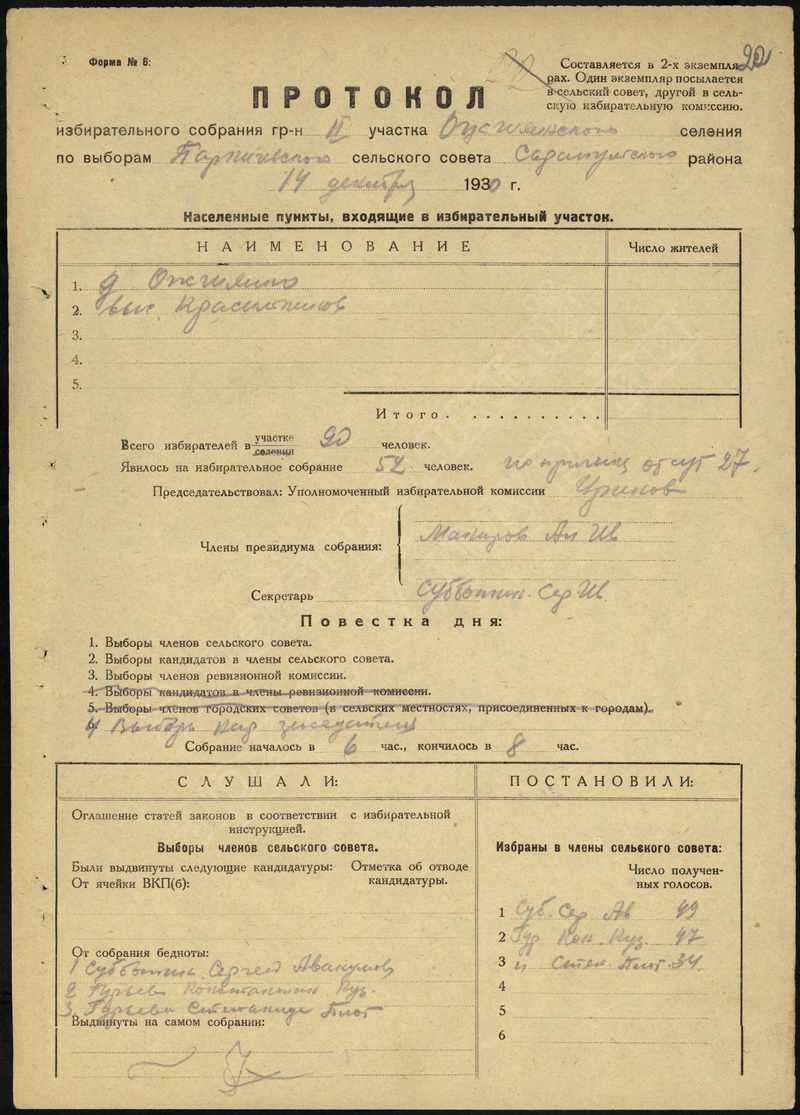 Форма № 6:
Составляется в 2-х экземпля-
рах. Один экземпляр посылается
в сельский совет, другой в сель-
скую избирательную комиссию.
ПРОТОКОЛ
избирательного собрания гр-н II участка селения
по выборам сельского совета района
14 декабря 1930 г.
Населенные пункты, входящие в избирательный участок.
НАИМЕНОВАНИЕ Число жителей
1. д
2. выс.
3.
4.
5.
Итого . . . . . . . . . . .
Всего избирателей в участке селения 90 человек.
Явилось на избирательное собрание 52 человек. 27
Председательствовал: Уполномоченный избирательной комиссии
Члены президиума собрания: Ив
Секретарь Субботин Сер Ив
Повестка дня:
1. Выборы членов сельского совета.
2. Выборы кандидатов в члены сельского совета.
3. Выборы членов ревизионной комиссии.
4. Выборы кандидатов в члены ревизионной комиссии.
5. Выборы членов городских советов (в сельских местностях, присоединенных к городам).
4 Выборы нар заседателей
Собрание началось в 6 час., кончилось в 8 час.
СЛУШАЛИ: ПОСТАНОВИЛИ:
Оглашение статей законов в соответствии с избирательной
инструкцией.
Выборы членов сельского совета.
Были выдвинуты следующие кандидатуры: Отметка об отводе
От ячейки ВКП(б): кандидатуры.
От собрания бедноты:
1 Субботин Сергей
2 Гурьев Константин Куз.
3. Гурьева Степанида
Выдвинуты на самом собрании:
Избраны в члены сельского совета:
Число получен-
ных голосов.
1 Суб. Сер. Ав 49
2 Гур Кон. Куз. 47
3 Степ. 34
4
5
6